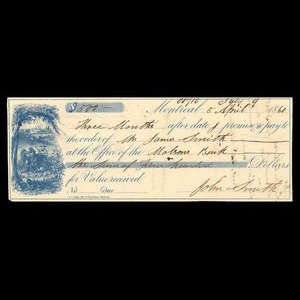 $500
Montreal 5 April 1861
Three Months after date I promise to pay to
the order of Mr James Smith
at the Office of the Molsons Bank
the Sum of Five hundred Dollars
for Value received
No Due John Smith